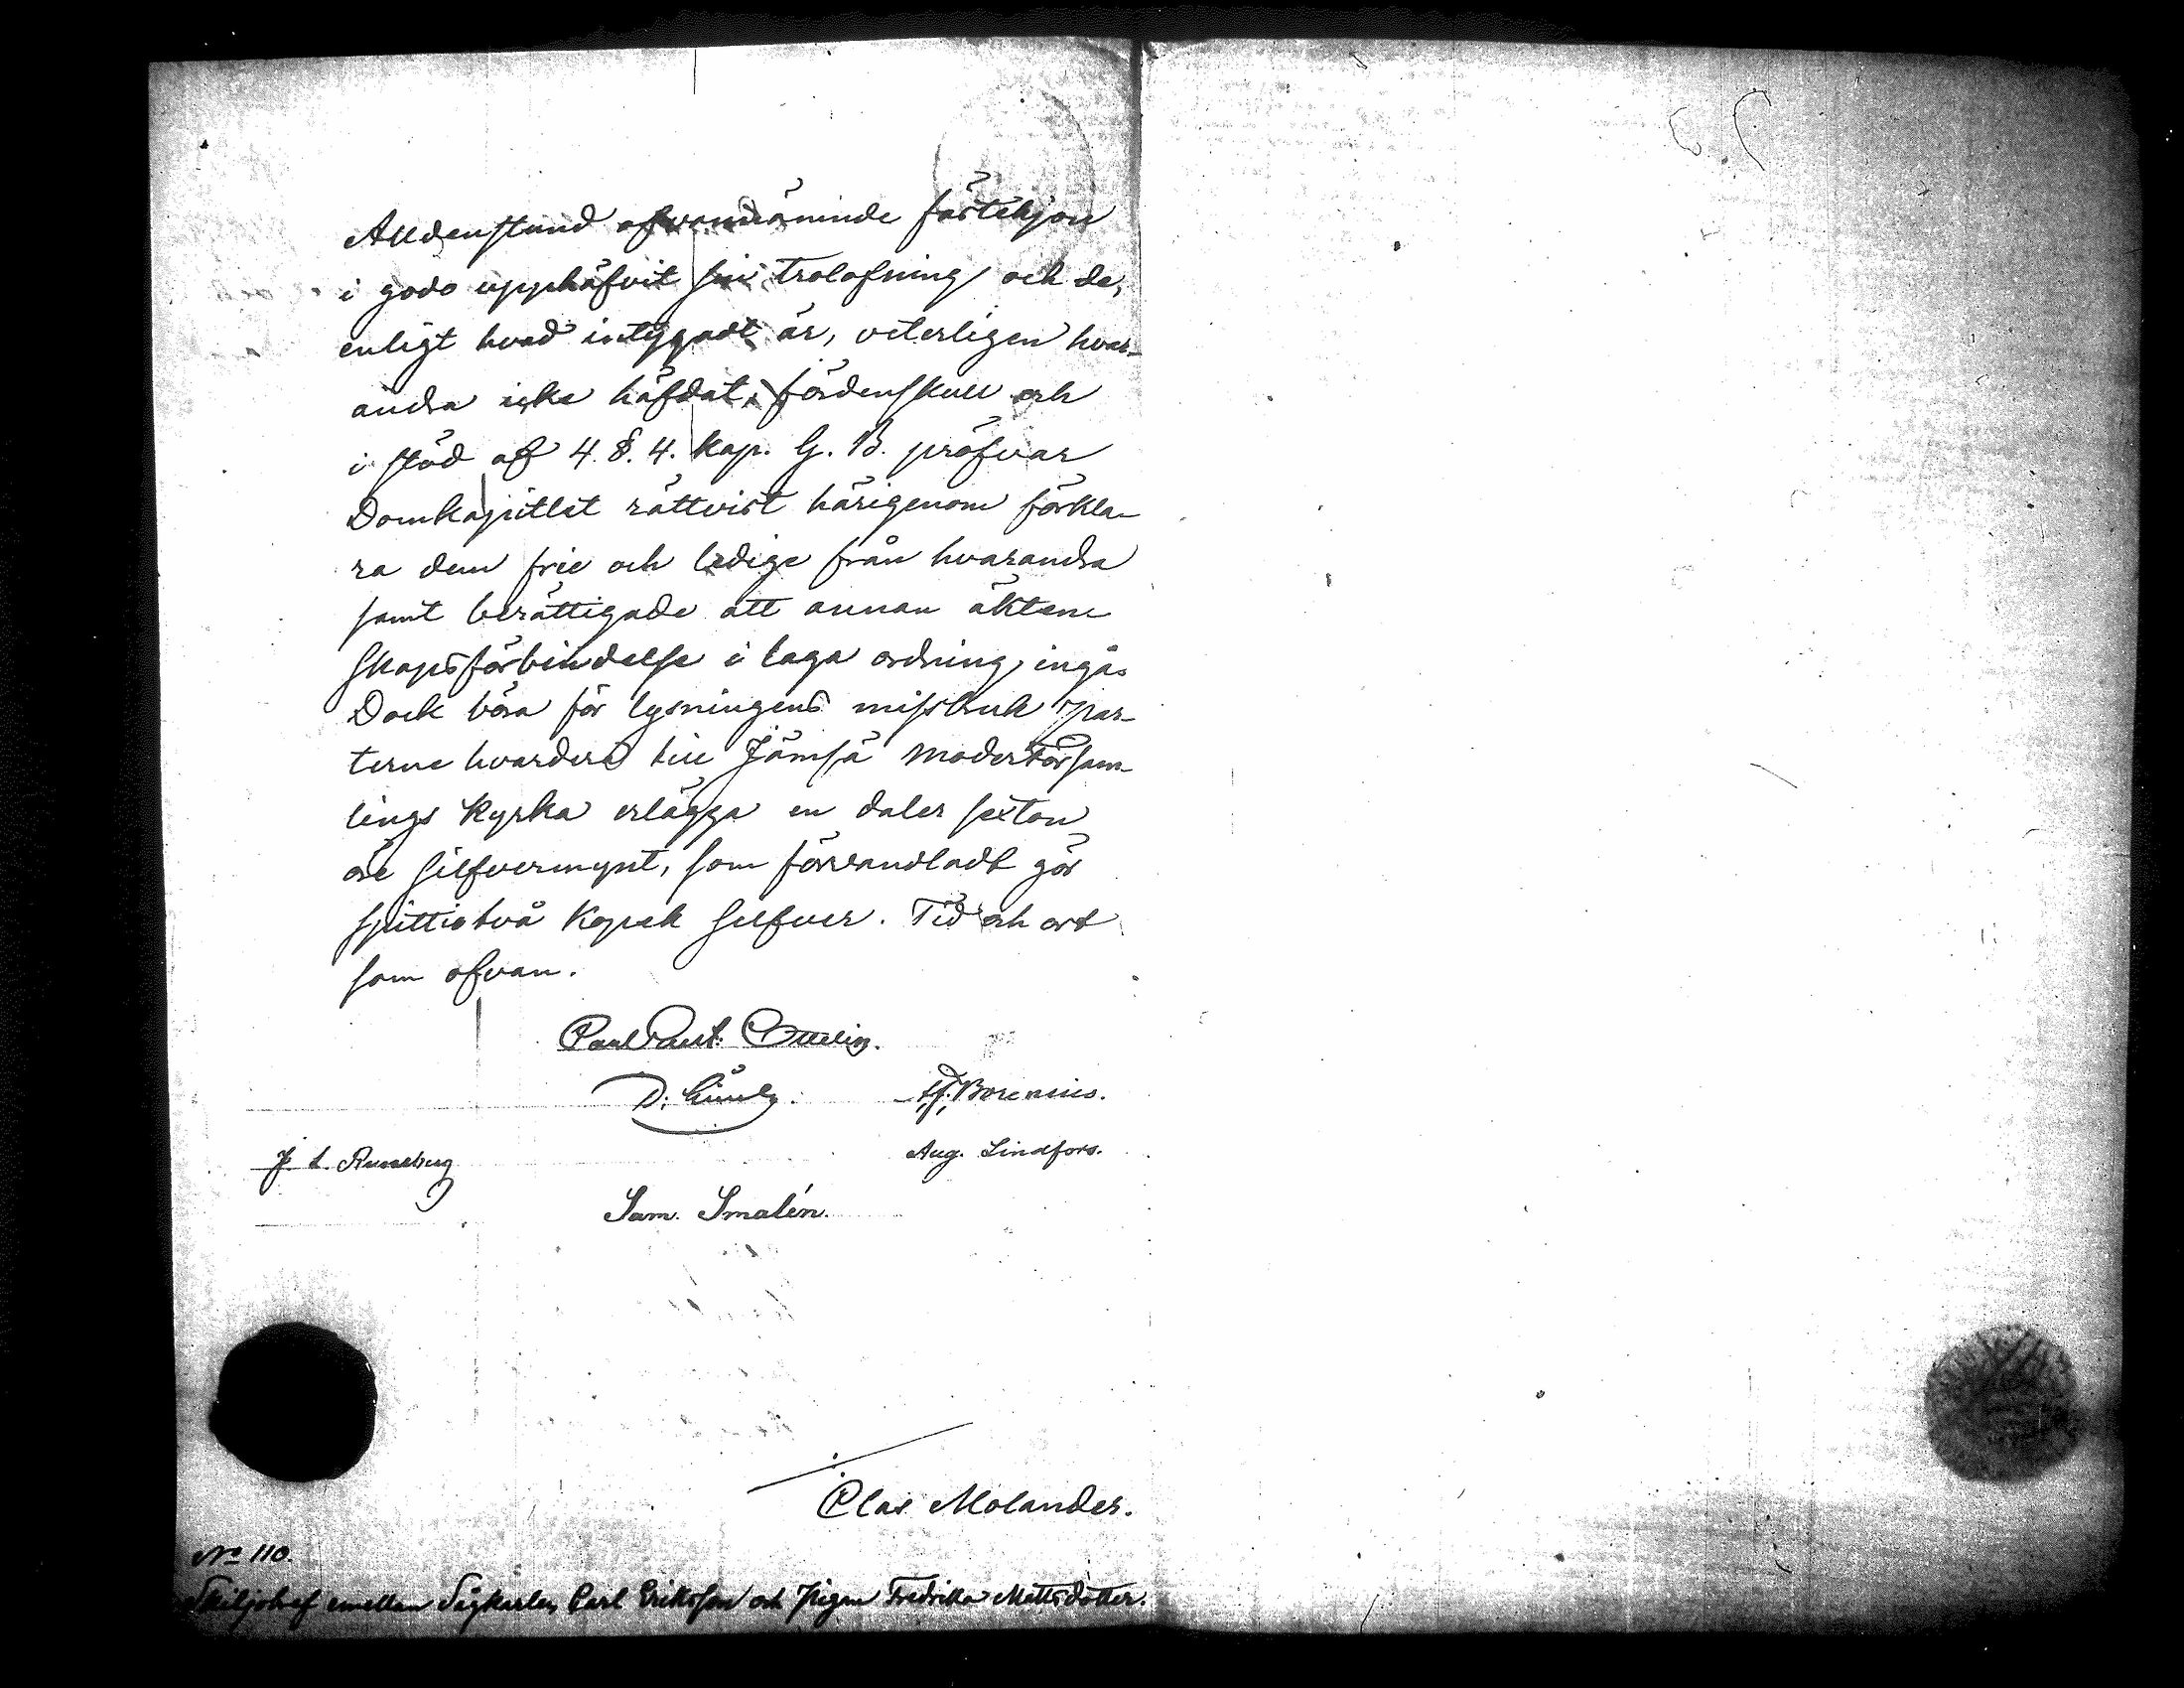 Alldenstund ofvannäminde fästehjon
i godo upphäfvit sin trolofning och de,
enligt hvad intygadt är, veterligen hvar-
andra icke häfdat, fördenskull och
i stöd af 4. §. 4. Kap. G. B. pröfvar
Domkapitlet rättvist härigenom förkla-
ra dem frie och ledige från hvarandra
samt berättigade att annan äkten-
skapsförbindelse i laga ordning ingå.
Dock böra för lysningens missbruk par-
terne hvardera till Jämsä moderförsam-
lings Kyrka erlägga en daler sexton
öre silfvermynt, som förvandladt gör
sjuttiotvå Kopek silfver. Tid och ort
som ofvan.
Carl Gust. Ottelin.
Borenius.
J. L. Runeberg
Aug. Lindfors.
Sam. Smalén.
Clas Molander.
No 110.
Skiljobref emellan Sågkarlen Carl Eriksson och Pigan Fredrika Mattsdotter.